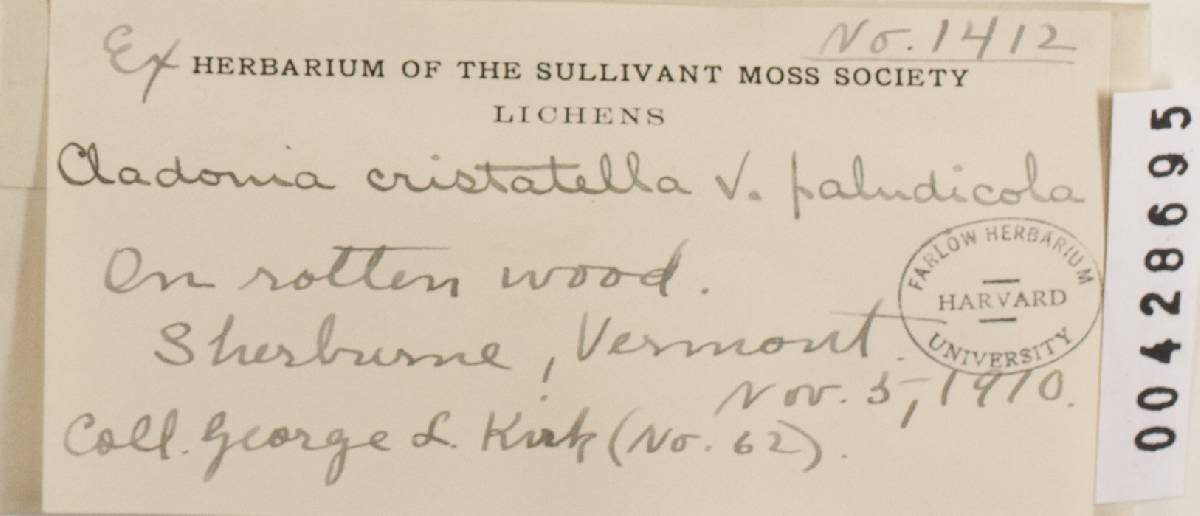 No. 1412
Ex HERBARIUM OF THE SULLIVANT MOSS SOCIETY
LICHENS
Cladonia cristatella v. paludicola
On rotten wood.
FARLOW HERBARIUM
HARVARD
UNIVERSITY
Sherburne, Vermont.
Nov. 5, 1910.
Coll. George L. Kirk (No. 62).
00428695